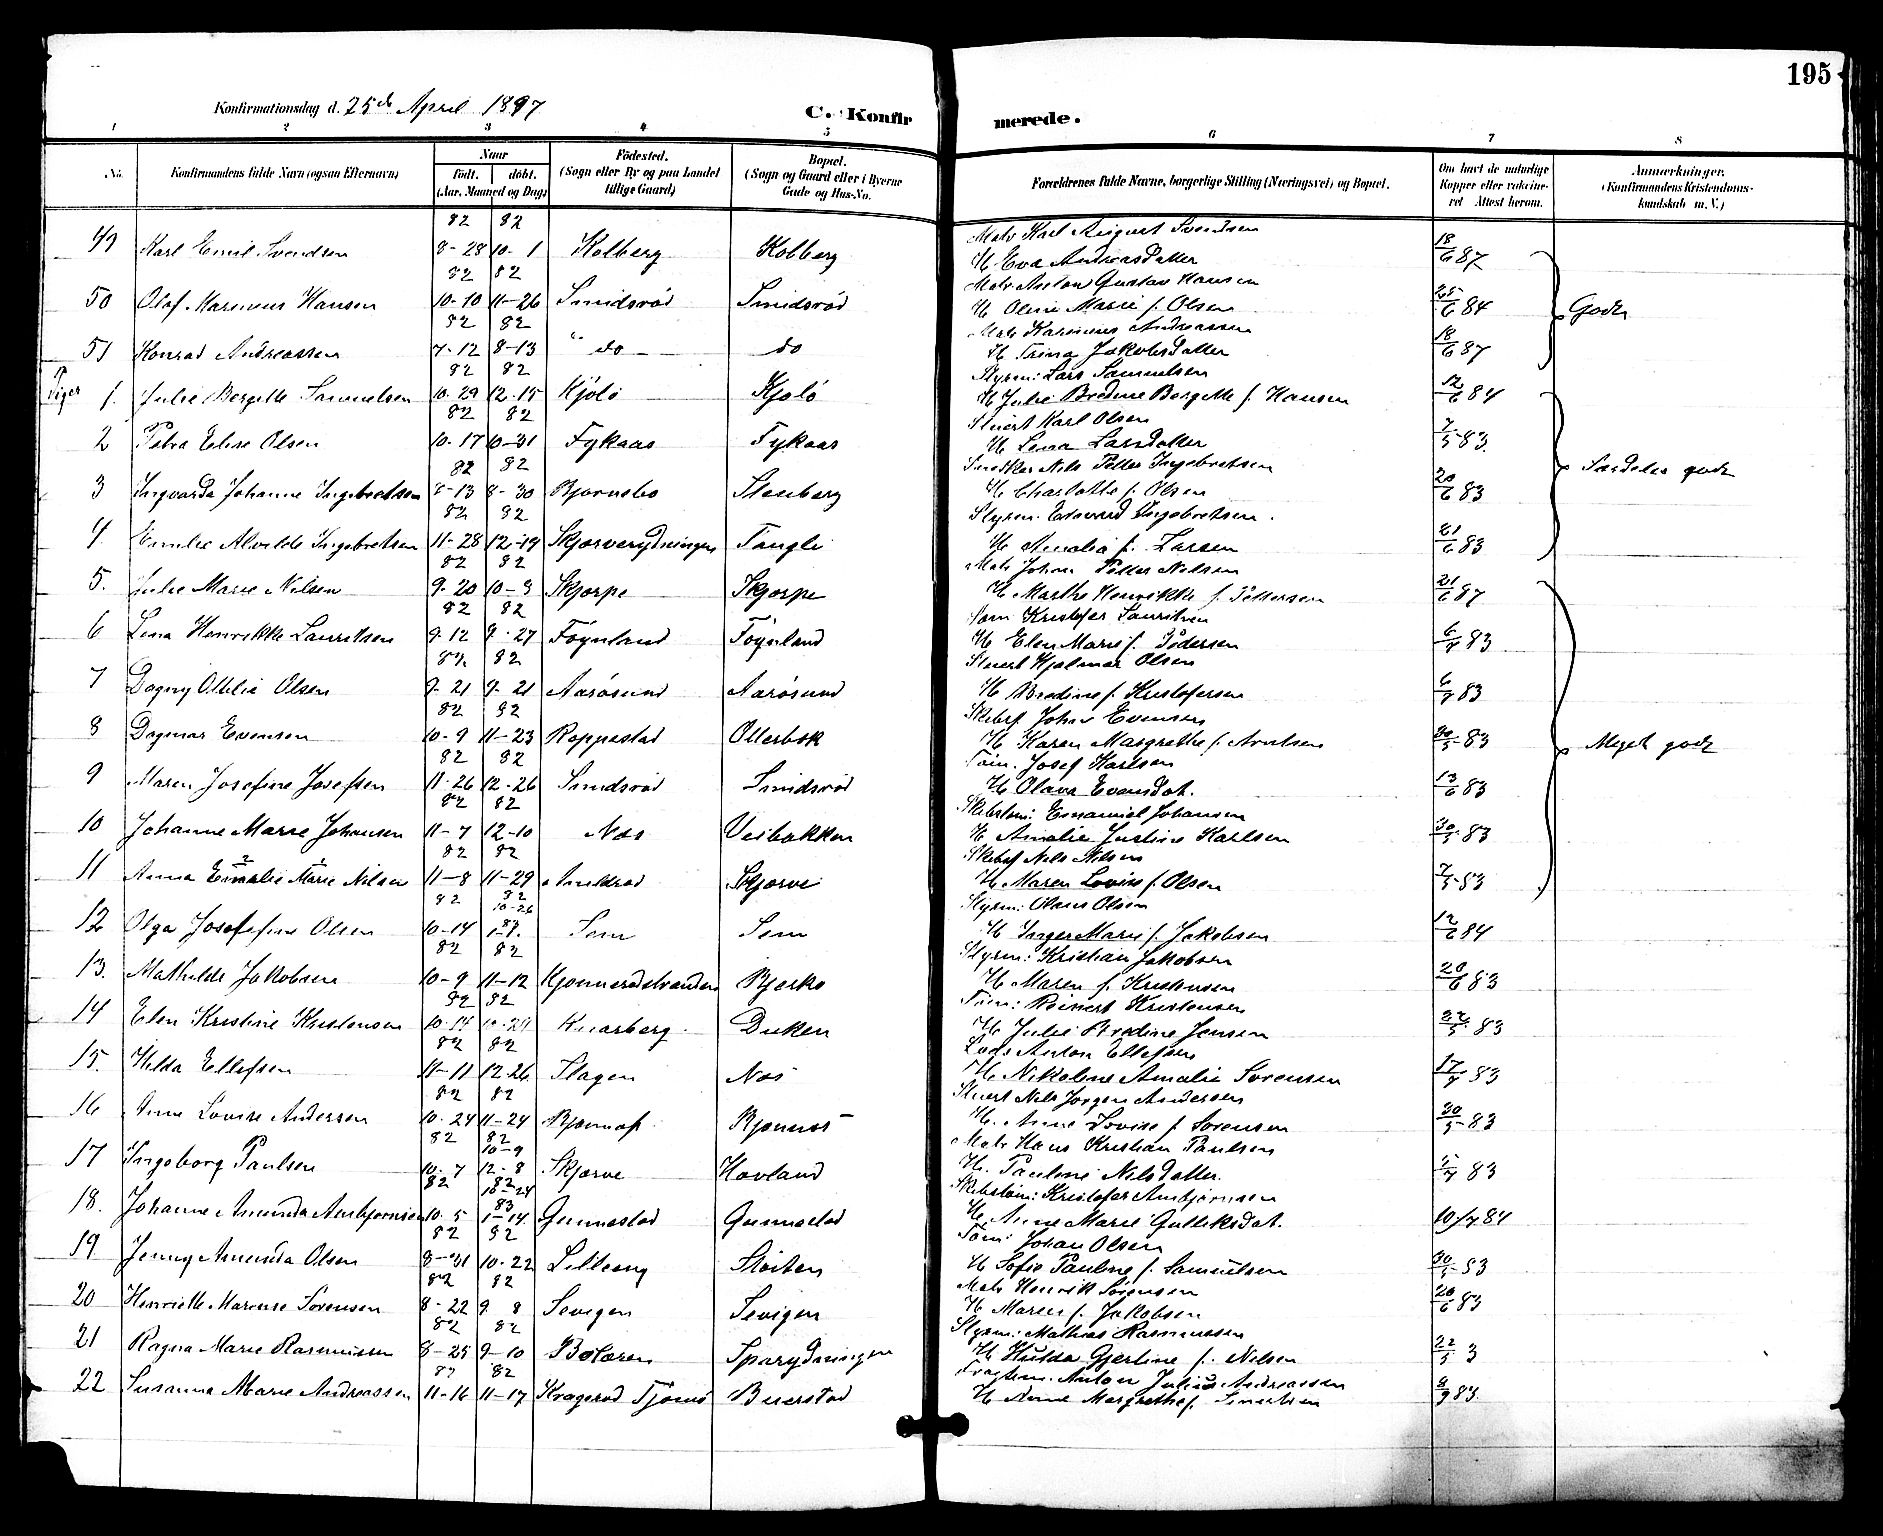 195
Konfirmationsdag d. 25de April 1897
C. Konfirmerede.
1 2 3 4 5 6 7 8
No. Konfirmandens fulde Navn (ogsaa Efternavn) Naar födt. döbt. (Aar, Maaned og Dag) Födested. (Sogn eller By og paa Landet tillige Gaard) Bopæl. (Sogn og Gaard eller i Byerne Gade og Hus-No. Forældrenes fulde Navne, borgerlige Stilling (Næringsvei) og Bopæl. Om havt de naturlige Kopper eller vaccineret. Attest herom. Anmærkninger. (Konfirmandens Kristendomskundskab m. V.)
82 82 Matr Karl August Svendsen
49 Karl Emil Svendsen 8-28 10-1 Kolberg Kolberg H. Eva Andreasdatter 18/6 87
82 82 Matr Anton Gustav Hansen
50 Olaf Marinius Hansen 10-10 11-26 Smidsrød Smidsrød H. Oline Marie f. Olsen 25/6 84 Godt
82 82 Matr Andreassen
51 Konrad Andreassen 7-12 8-13 " do — do H Trina Jakobsdatter 18/6 87
82 82 Styrm: Lars Samuelsen
Piger 1. Julie Bergette Samuelsen 10-29 12-15 Kjölö Kjölö H Julie Bredine Borgette f. Hansen 12/6 84
82 82 Stuert Karl Olsen
2 Petra Elise Olsen 10-17 10-31 Fykaas Fykaas H Lena Larsdatter 7/5 83
82 82 Snedker Nils Petter Ingebretsen
3 Ingvarda Johanne Ingebretsen 8-13 8-30 Bjørnebo Stenberg H Charlotte f. Olsen 20/6 83 Særdeles godt
82 82 Styrm. Edvard Ingebretsen.
4. Emilie Alvilde Ingebretsen 11-28 12-19 Skjærverydningen Tangli H Amalia f. Larsen 21/6 83
82 82 Matr Johan Petter Nilsen
5. Julie Marie Nilsen 9-20 10-8 Skjerpe Skjerpe H Marthe Henrikke f. Pettersen 21/6 87
82 82 Tøm Kristofer Lauritsen
6 Lina Henrikke Lauritsen 9-12 9-27 Föynland Föynland H Elen Marie f. Pedersen 6/7 83
82 82 Stuert Hjalmar Olsen
7 Dagny Otilie Olsen 9-21 9-21 Aarösund Aarösund H Bredine f. Kristofersen 6/7 83
82 82 Skibsf Johan Evensen
8 Dagmar Evensen 10-9 11-23 Roppestad Ollerbok H Karen Margrethe f. Arntsen 30/5 83 Meget godt
82 82 Tøm. Josef Karlsen
9 Maren Josefine Josefsen 11-26 12-26 Smidsröd Smidsröd H Olava Evensdat. 13/6 83
82 82 Skibstøm: Emanuel Johansen
10 Johanne Marie Johansen 11-7 12-10 Næs Veibakken H Amalie Justine Karlsen 30/5 83
82 82 Skibsf Nils Nilsen
11 Anna Emalie Marie Nilsen 11-8 11-29 Skjærve H Maren Lovise f. Olsen 7/5 83
82 82 10-26 Styrm: Olaus Olsen
12 Olga Josefine Olsen 10-14 83 1-7. Sem Sem H Inger Marie f. Jakobsen 12/6 84
82 82 Styrm: Kristian Jakobsen
13. Mathilde Jakobsen 10-9 11-12 Kjønnerødstranden Bjerke H Maren f. Kristensen 20/6 83
82 82 Tøm: Reinert Kristensen
14 Elen Kristine Kristensen 10-14 10-29 Knarberg Duken H Julie Bredine Jensen 22/5 83
82 82 Lods Anton Ellefsen
15. Hilda Ellefsen 11-11 12-26 Slagen Næs H. Nikoline Amalie Sørensen 17/7 83
82 82 Stuert Nils Jørgen Andersen
16 Anne Lovise Andersen 10-24 11-24 Bjønnes H. Anne Lovise f Sørensen 30/5 83
82 82 10-9 Matr Hans Kristian Paulsen
17 Ingeborg Paulsen 10-7 12-8 Skjærve Hovland H. Pauline Nilsdatter. 83
82 82 10-24 Skibstøm: Kristofer Ambjørnsen
18. Johanne Amunda Ambjørnsen 10-5 83 1-14 Gunnestad Gunnestad H. Anne Marie Gulliksdat. 10/7 84
82 82 Tøm: Johan Olsen
19 Jenny Amunda Olsen 8-31 10-22 Lilleeng Støiten H Sofie Pauline f. Samuelsen 30/5 83
82 82 Matr Henrik Sørensen
20 Henriette Marense Sørensen 8-22 9 8 Sevigen Sevigen H Maren f. Jakobsen 20/6 83
82 82 Styrm: Mathias Rasmussen
21 Ragna Marie Rasmussen 8-25 9-10 Bolæren Sparydningen H Hulda Gjertine f. Nilsen 22/5 3
82 82 Anton Julius Andreassen
22 Susanna Marie Andreassen 11-16 11-17 Kragerød Tjømø Buerstad H Anne Margrethe f. 8/9 83.